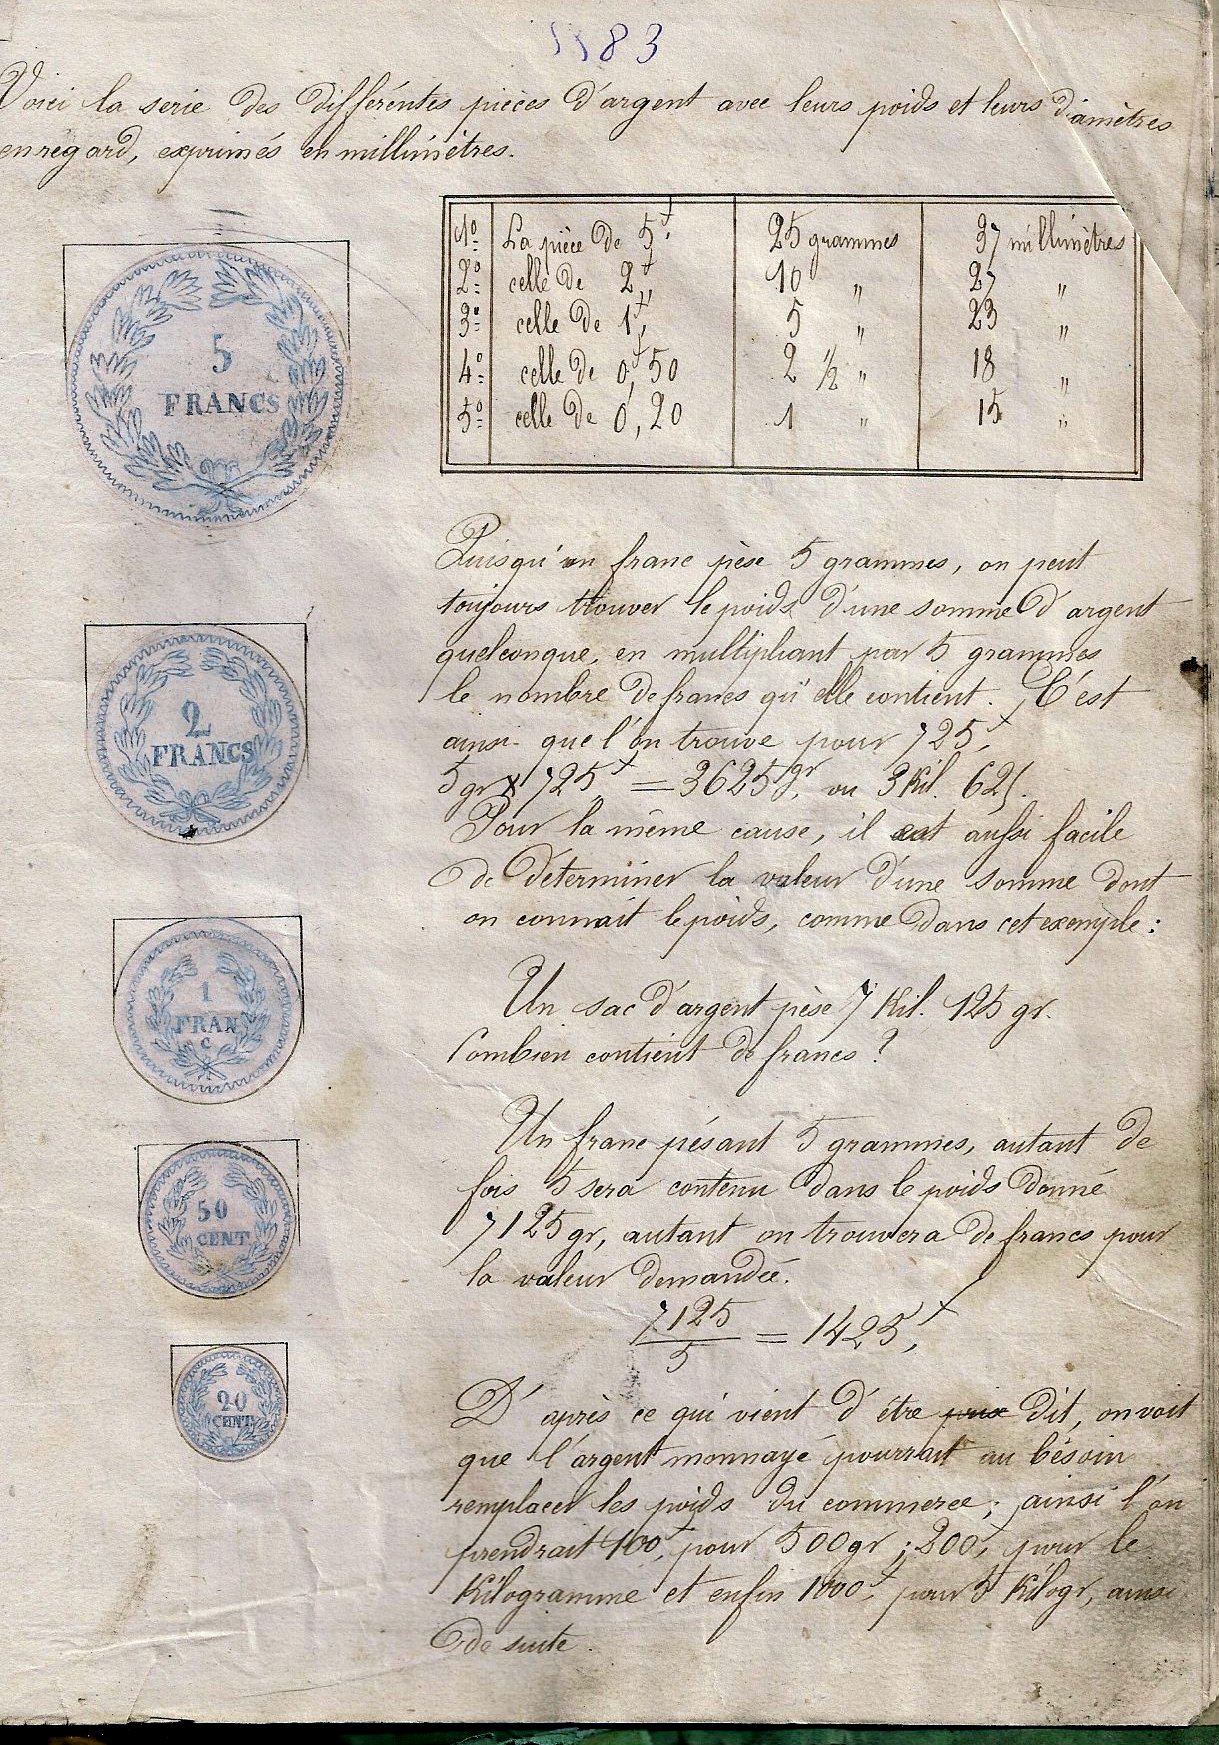 1183
Voici la serie des différéntes pièces d'argent avec leurs poids et leurs diamètres
en regard, exprimés en millimétres.
1º La pièce de 5f. 25 grammes 37 millimètres
2º celle de 2f, 10 " 27 "
3º celle de 1f, 5 " 23 "
4º celle de 0f,50 2 1/2 " 18 "
5º celle de 0,20 1 " 15 "
5
FRANCS
2
FRANCS
1
FRAN
C
50
CENT
20
CENT
Puisqu'un franc pèse 5 grammes, on peut
toujours trouver le poids d'une somme d'argent
quelconque, en multipliant par 5 grammes
le nombre de francs qu'elle contient. C'est
ainsi que l'on trouve pour 725f,
5gr x 725f, = 3625gr, ou 3 Kil. 625.
Pour la même cause, il est aussi facile
de déterminer la valeur d'une somme dont
on connait le poids, comme dans cet exemple :
Un sac d'argent pèse 7 Kil. 125 gr.
Combien contient de francs ?
Un franc pésant 5 grammes, autant de
fois 5 sera contenu dans le poids donné
7125 gr, autant on trouvera de francs pour
la valeur demandée.
7125/5 = 1425,f
D'après ce qui vient d'être prix dit, on voit
que l'argent monnayé pourrait au bésoin
remplacer les poids du commerce ; ainsi l'on
prendrait 100f, pour 500 gr ; 200f, pour le
Kilogramme et enfin 1000f, pour 5 Kilogr, ainsi
de suite.